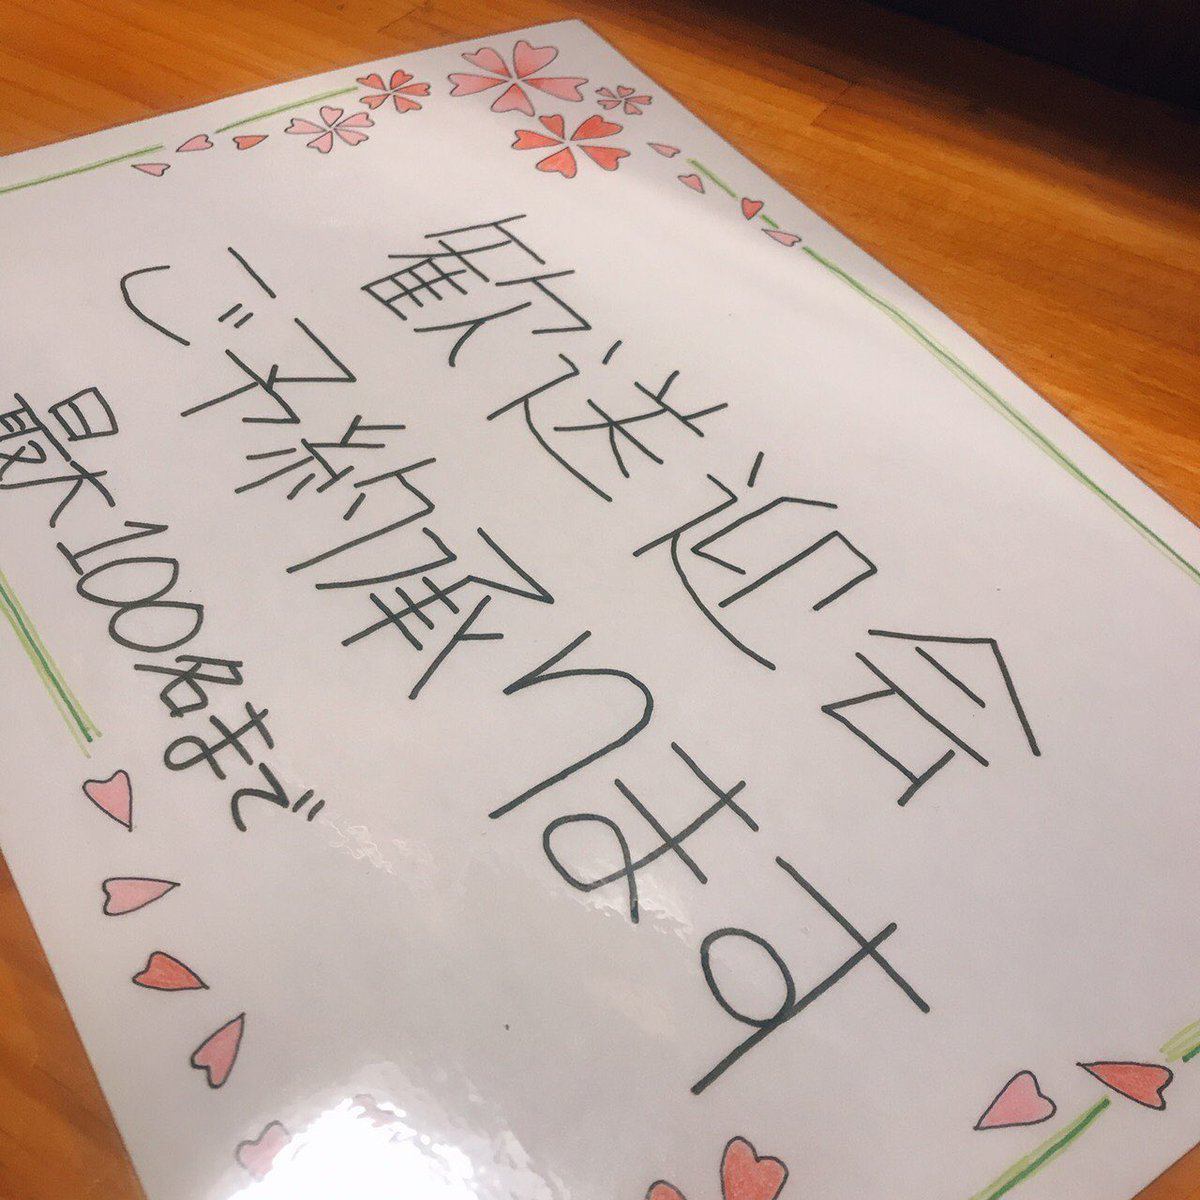 歓送迎会
ご予約承ります
最大100名まで